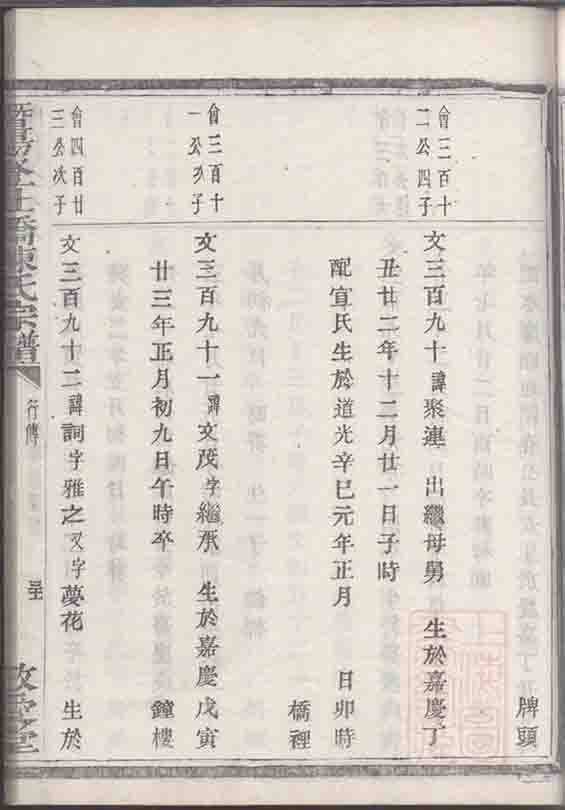 牌頭
會三百十
二公四子
文三百九十諱聚連 出繼母舅 生於嘉慶丁
丑廿二年十二月廿一日子時
配宣氏生於道光辛巳元年正月 日卯時
橋裡
會三百十
一公次子
文三百九十一諱文茂字繼承 生於嘉慶戊寅
廿三年正月初九日午時卒 鐘樓
會四百廿
三公次子
文三百九十二諱詞字雅之又字夢花 生於
橋陳氏宗譜
行傳